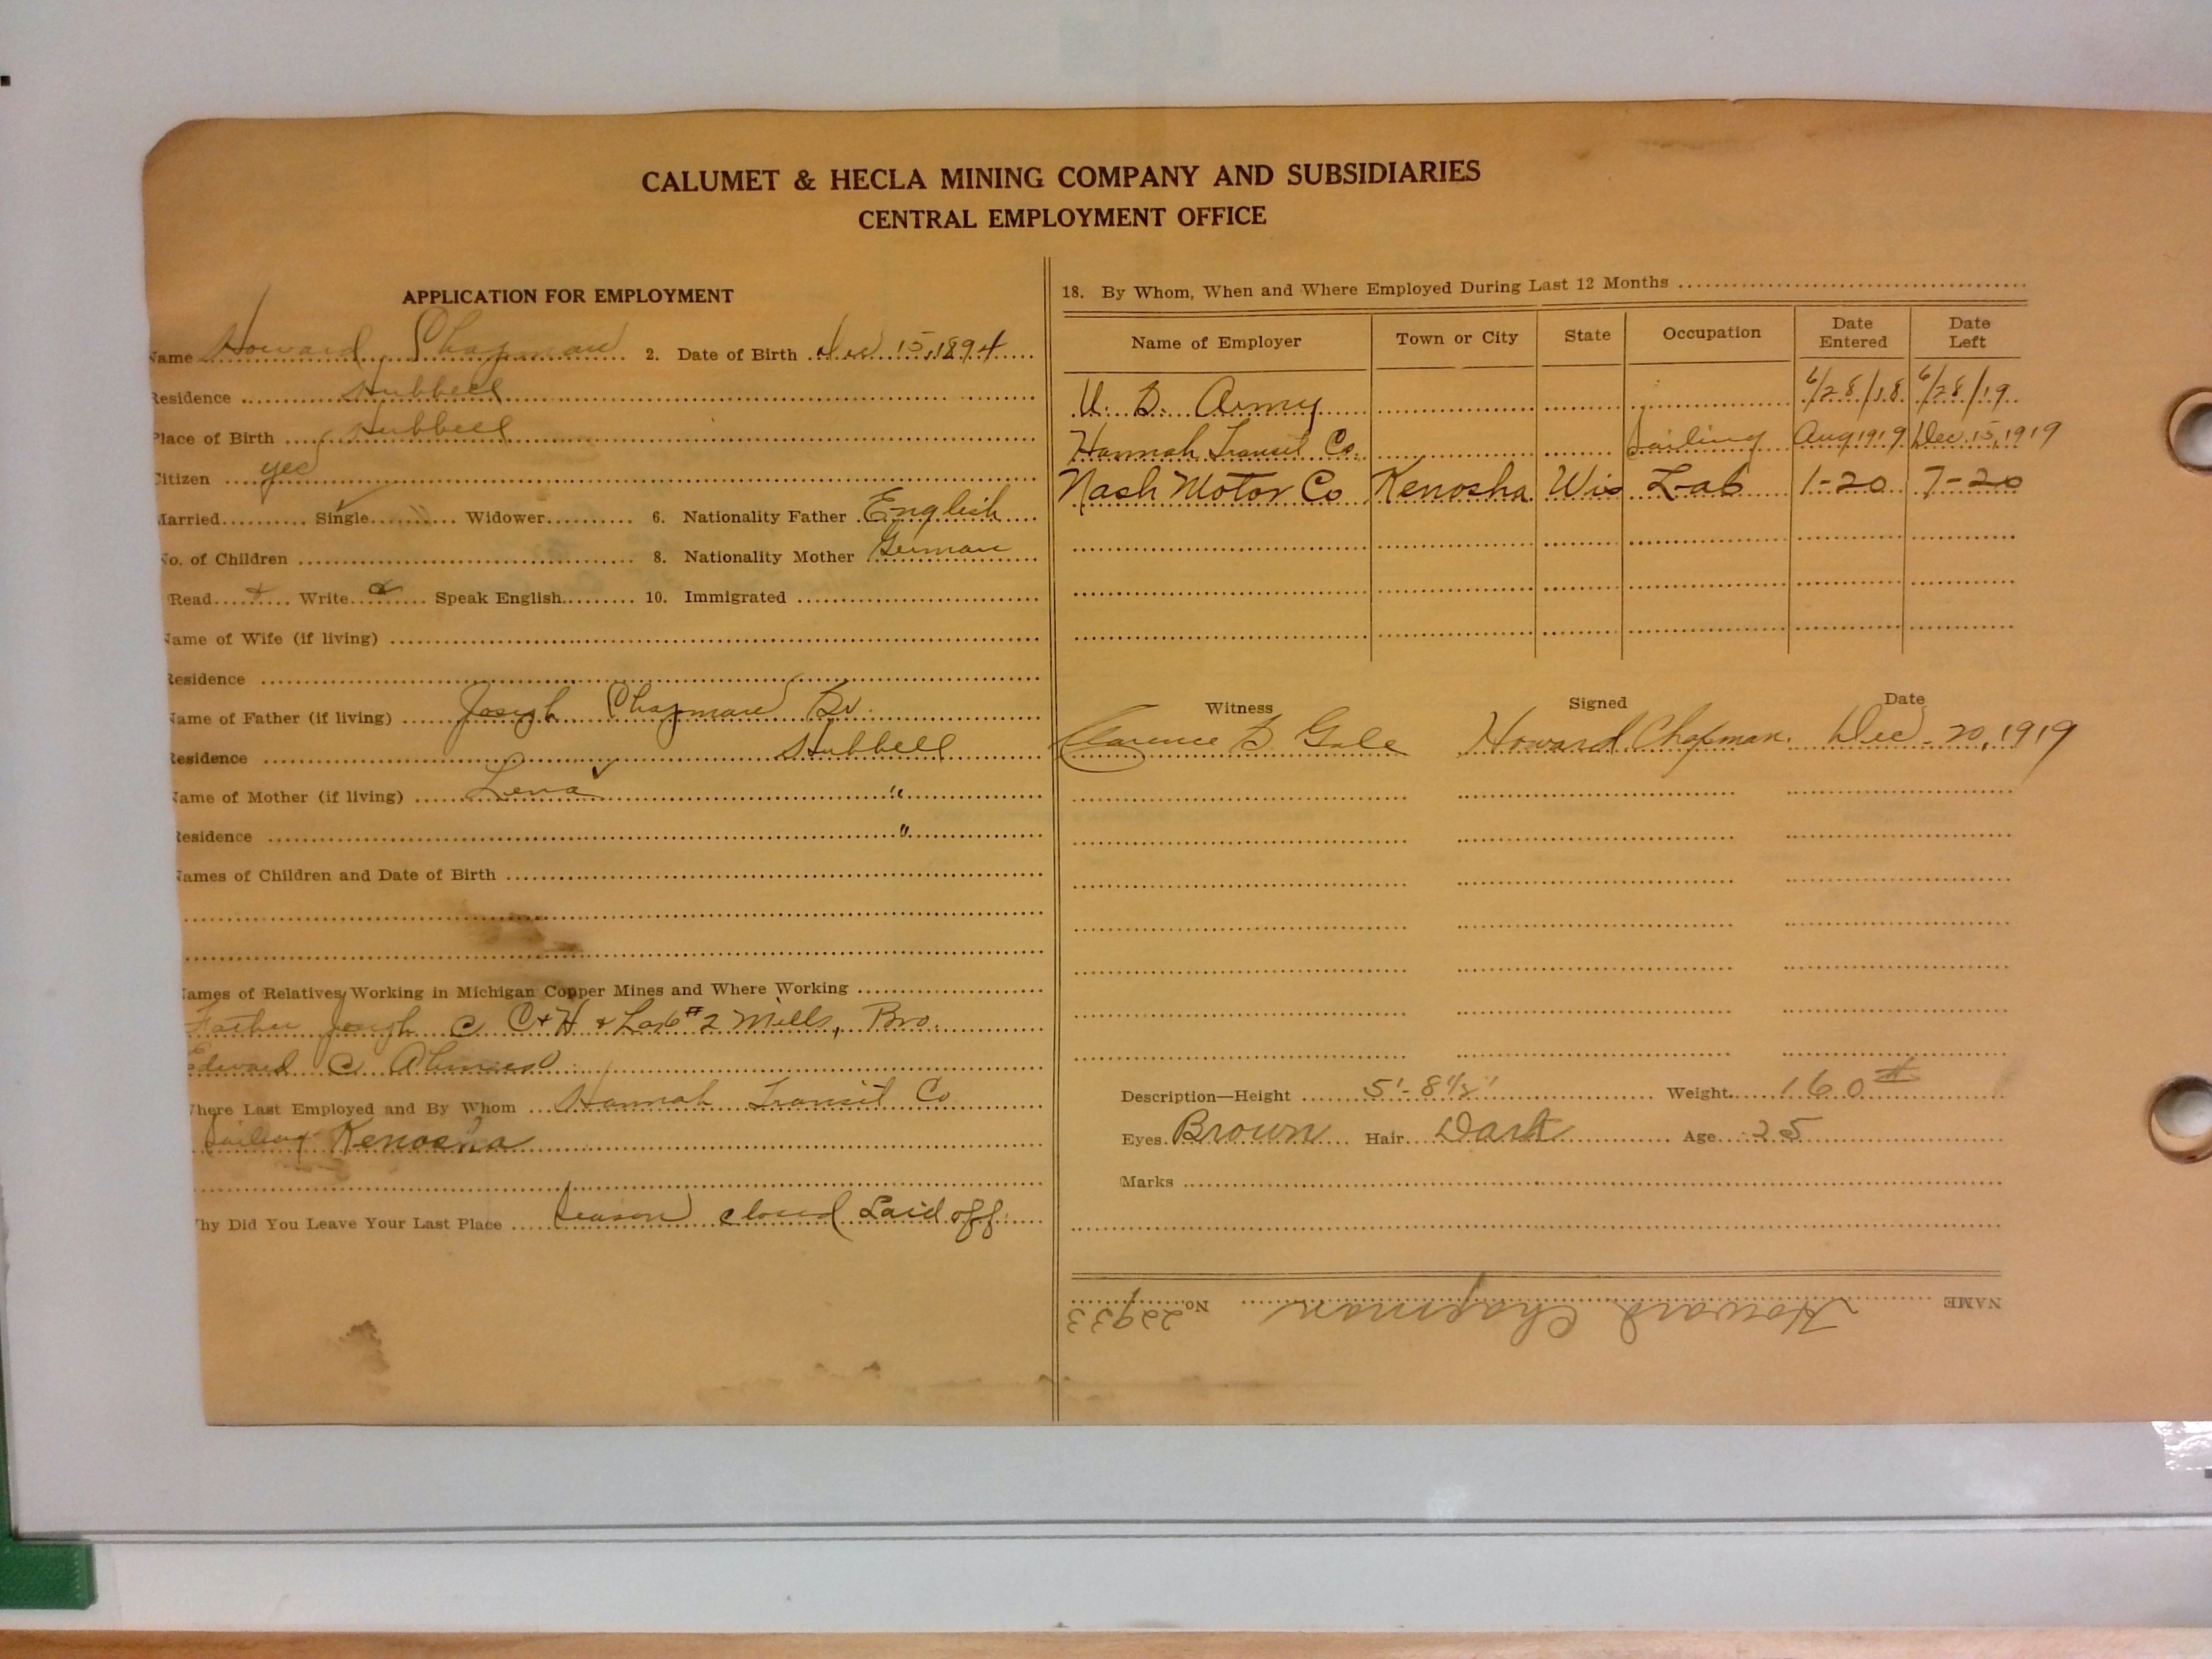 CALUMET & HECLA MINING COMPANY AND SUBSIDIARIES
CENTRAL EMPLOYMENT OFFICE
APPLICATION FOR EMPLOYMENT
Name Howard Chapman 2. Date of Birth Dec 15, 1894
Residence Hubbell
Place of Birth Hubbell
Citizen yes
Married Single ✓ Widower 6. Nationality Father English
No. of Children 8. Nationality Mother German
Read Write Speak English 10. Immigrated
Name of Wife (if living)
Residence
Name of Father (if living) Joseph Chapman Sr.
Residence Hubbell
Name of Mother (if living) Lena ✓ "
Residence "
Names of Children and Date of Birth
Names of Relatives Working in Michigan Copper Mines and Where Working
Father Joseph C C+H + Lake #2 Mills, Bro.
Edward C Ahmeek
Where Last Employed and By Whom Hannah Transit Co
Sailing Kenosha
Why Did You Leave Your Last Place Season closed Laid off
18. By Whom, When and Where Employed During Last 12 Months
Name of Employer Town or City State Occupation Date Entered Date Left
U. S. Army 6/28/18 6/28/19
Hannah Transit Co. Sailing Aug 1919 Dec. 15, 1919
Nash Motor Co Kenosha Wis Lab 1-20 7-20
Witness Signed Date
Clarence B Gale Howard Chapman. Dec. 20, 1919
Description—Height 5'-8 1/2" Weight 160#
Eyes Brown Hair Dark Age 25
Marks
NAME Howard Chapman No. 22933